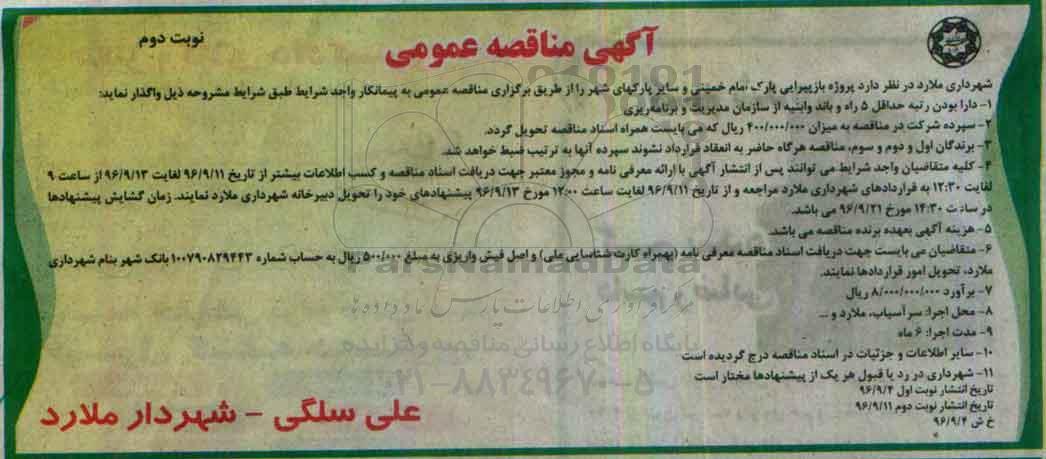 آگهی مناقصه عمومی
نوبت دوم
شهرداری ملارد در نظر دارد پروژه بازپیرایی پارک امام خمینی و سایر پارکهای شهر را از طریق برگزاری مناقصه عمومی به پیمانکار واجد شرایط طبق شرایط مشروحه ذیل واگذار نماید:
۱- دارا بودن رتبه حداقل ۵ راه و باند وابنیه از سازمان مدیریت و برنامه‌ریزی
۲- سپرده شرکت در مناقصه به میزان ۴۰۰/۰۰۰/۰۰۰ ریال که می بایست همراه اسناد مناقصه تحویل گردد.
۳- برندگان اول و دوم و سوم، مناقصه هرگاه حاضر به انعقاد قرارداد نشوند سپرده آنها به ترتیب ضبط خواهد شد.
۴- کلیه متقاضیان واجد شرایط می توانند پس از انتشار آگهی با ارائه معرفی نامه و مجوز معتبر جهت دریافت اسناد مناقصه و کسب اطلاعات بیشتر از تاریخ ۹۶/۹/۱۱ لغایت ۹۶/۹/۱۳ از ساعت ۹
لغایت ۱۲:۳۰ به قراردادهای شهرداری ملارد مراجعه و از تاریخ ۹۶/۹/۱۱ لغایت ساعت ۱۲:۰۰ مورخ ۹۶/۹/۱۳ پیشنهادهای خود را تحویل دبیرخانه شهرداری ملارد نمایند. زمان گشایش پیشنهادها
در ساعت ۱۴:۳۰ مورخ ۹۶/۹/۲۱ می باشد.
۵- هزینه آگهی بعهده برنده مناقصه می باشد.
۶- متقاضیان می بایست جهت دریافت اسناد مناقصه معرفی نامه (بهمراه کارت شناسایی ملی) و اصل فیش واریزی به مبلغ ۵۰۰/۰۰۰ ریال به حساب شماره ۱۰۰۷۹۰۸۲۹۴۴۳ بانک شهر بنام شهرداری
ملارد، تحویل امور قراردادها نمایند.
۷- برآورد ۸/۰۰۰/۰۰۰/۰۰۰ ریال
۸- محل اجرا: سرآسیاب، ملارد و ...
۹- مدت اجرا: ۶ ماه
۱۰- سایر اطلاعات و جزئیات در اسناد مناقصه درج گردیده است
۱۱- شهرداری در رد یا قبول هر یک از پیشنهادها مختار است
تاریخ انتشار نوبت اول ۹۶/۹/۴
تاریخ انتشار نوبت دوم ۹۶/۹/۱۱
خ ش ۹۶/۹/۴
علی سلگی - شهردار ملارد
ParsNamadData
مرکز فرآوری اطلاعات پارس نماد داده ها
پایگاه اطلاع رسانی مناقصه و مزایده
۰۲۱-۸۸۳۴۹۶۷۰-۵